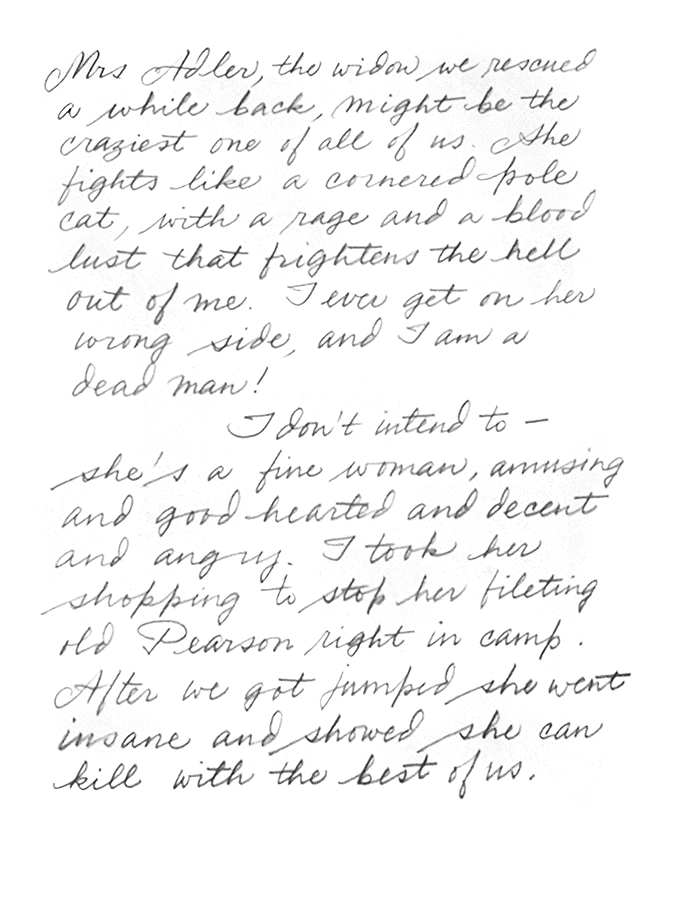 Mrs Adler, the widow we rescued
a while back, might be the
craziest one of all of us. She
fights like a cornered pole
cat, with a rage and a blood
lust that frightens the hell
out of me. I ever get on her
wrong side, and I am a
dead man!
I don't intend to –
she's a fine woman, amusing
and good hearted and decent
and angry. I took her
shopping to stop her fileting
old Pearson right in camp.
After we got jumped she went
insane and showed she can
kill with the best of us.